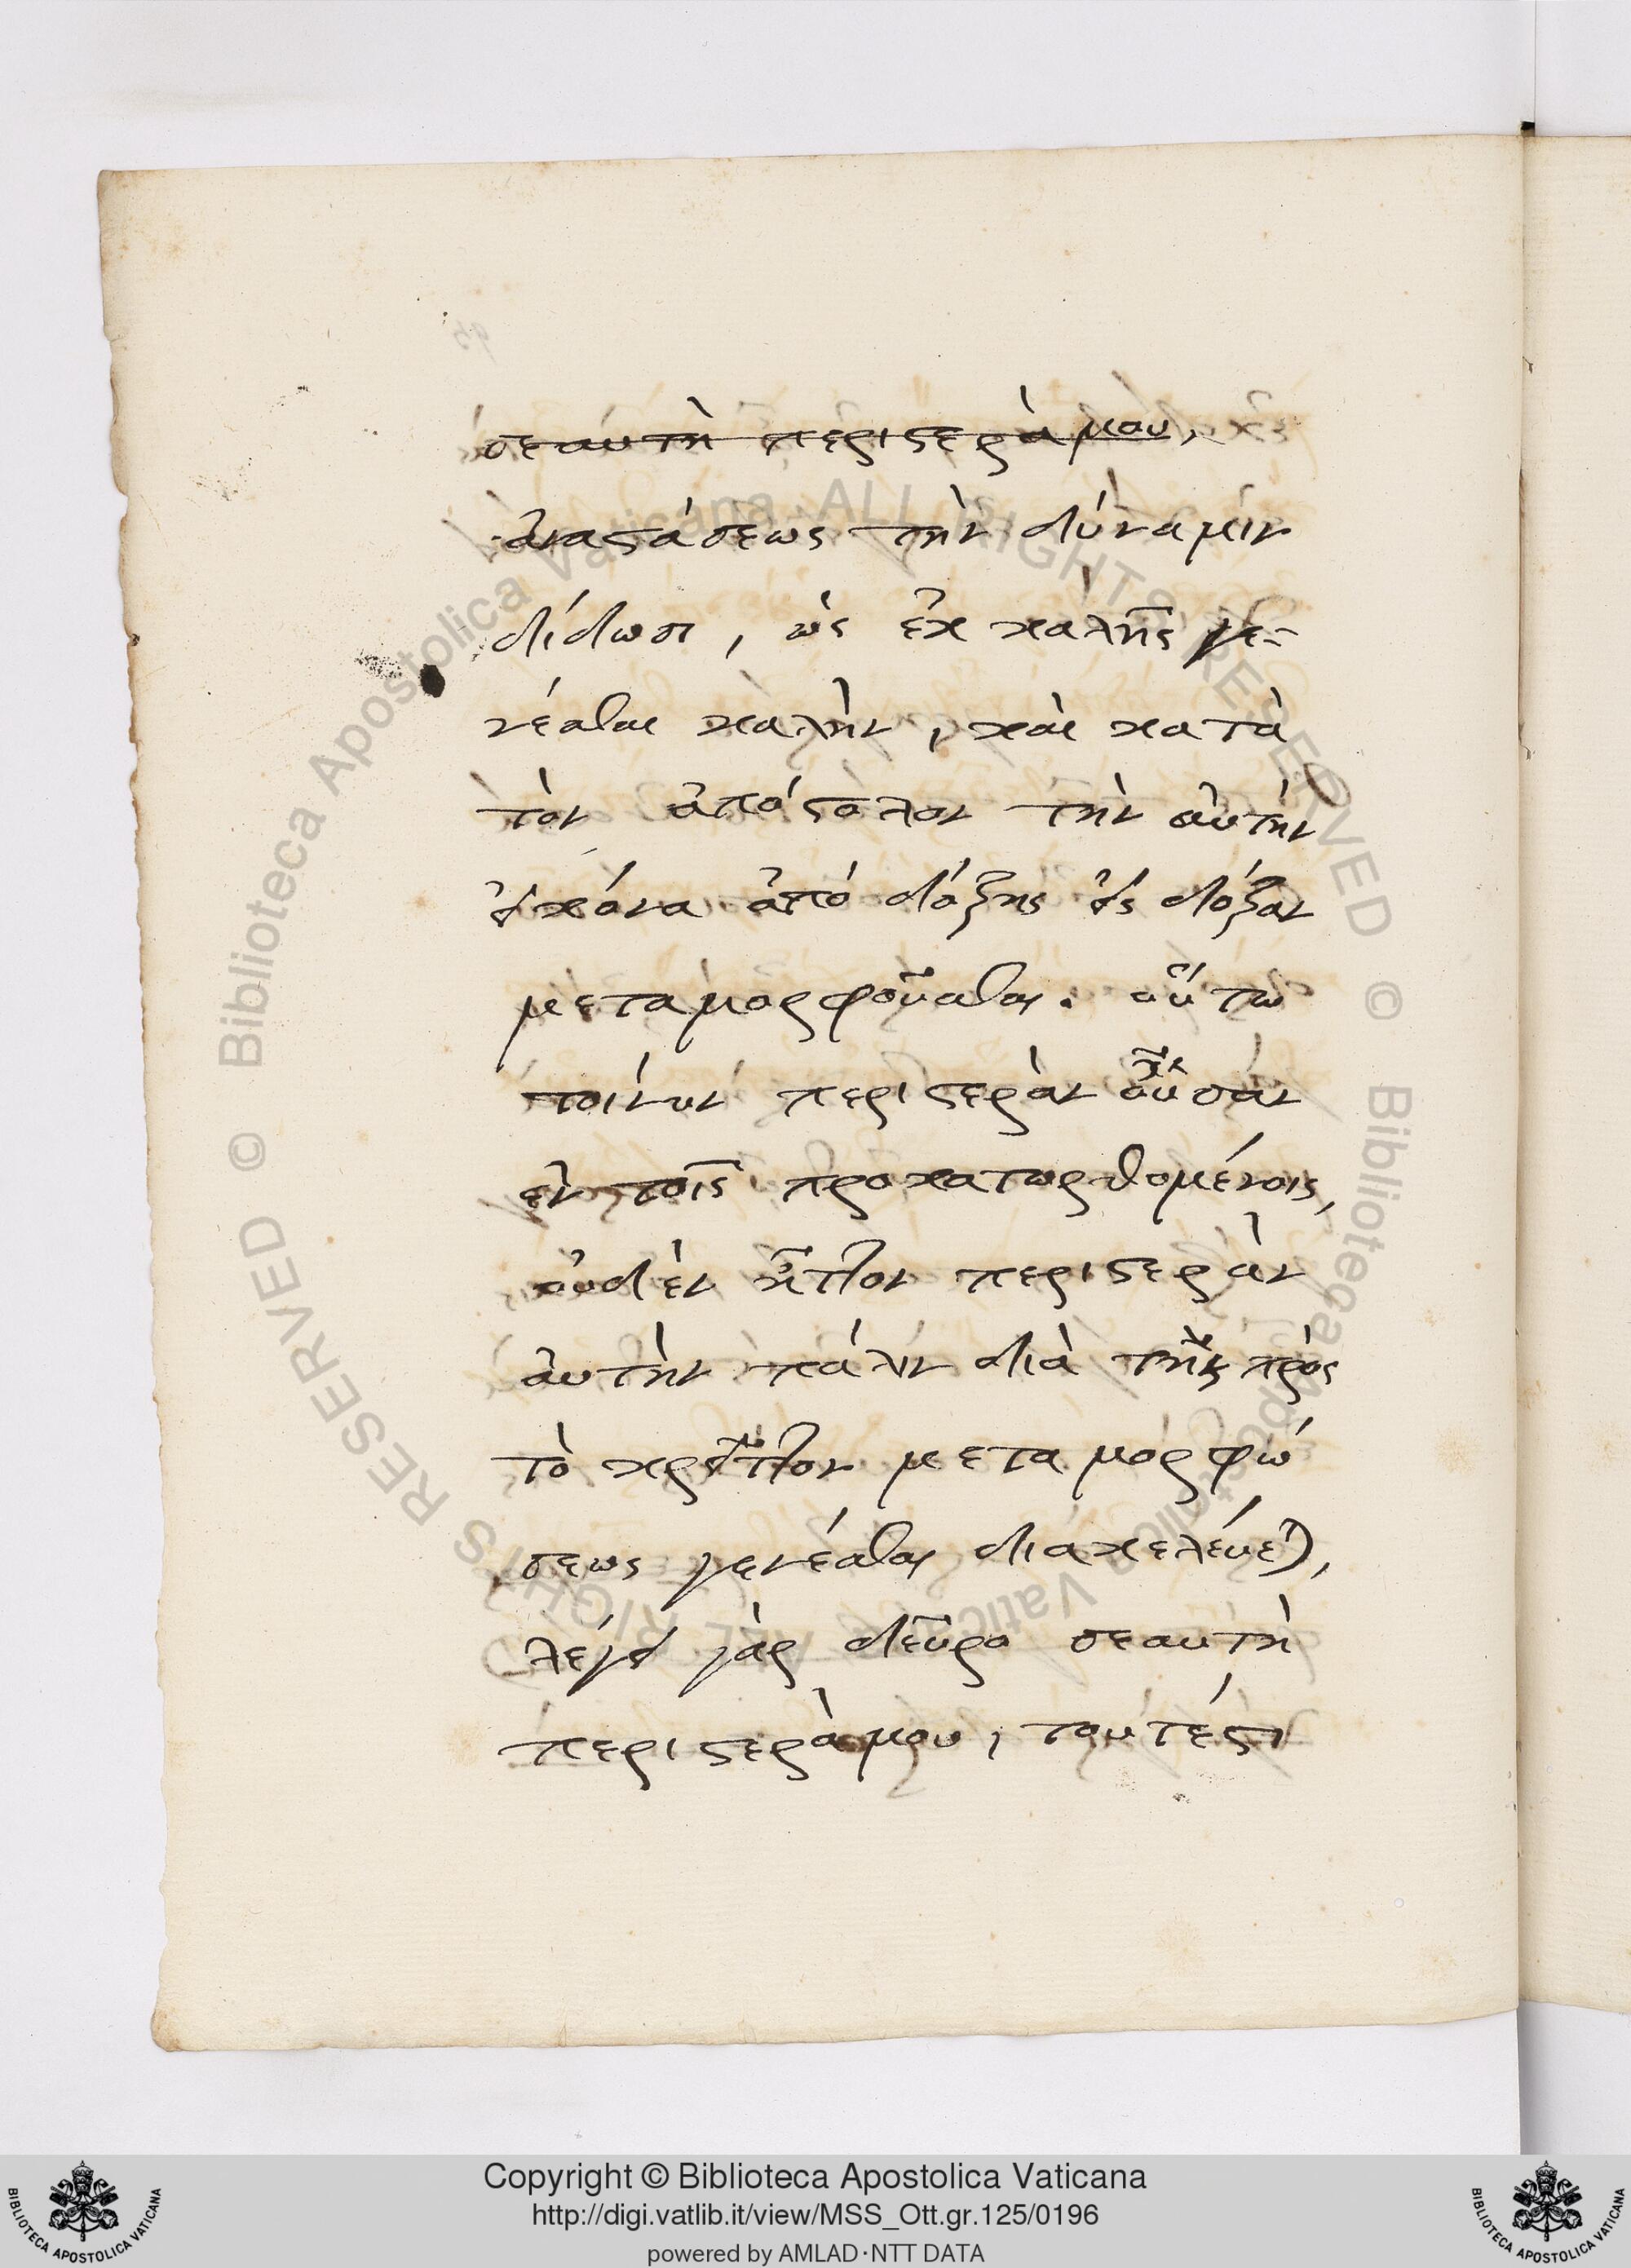 σεαυτὴ περιστερά μου,
ἀναστάσεως τὴν δύναμιν
δίδωσι, ὡς ἐκ καλῆς γε-
νέσθαι καλὴν, καὶ κατὰ
τὸν ἀπόστολον τὴν αὐτὴν
εἰκόνα ἀπὸ δόξης εἰς δόξαν
μεταμορφοῦσθαι. οὕτω
τοίνυν περιστερὰν οὖσαν
ἐν τοῖς προκατωρθομένοις,
οὐδὲν ἧττον περιστερὰν
αὐτὴν πάλιν διὰ τῆς πρὸς
τὸ κρεῖττον μεταμορφώ
σεως γενέσθαι διακελέυεται,
λέγει γὰρ δεῦρο σεαυτὴ
περιστερά μου, τουτέστι
Copyright © Biblioteca Apostolica Vaticana
http://digi.vatlib.it/view/MSS_Ott.gr.125/0196
powered by AMLAD·NTT DATA
BIBLIOTECA APOSTOLICA VATICANA
BIBLIOTECA APOSTOLICA VATICANA
© Biblioteca Apostolica Vaticana ALL RIGHTS RESERVED
© Biblioteca Apostolica Vaticana ALL RIGHTS RESERVED